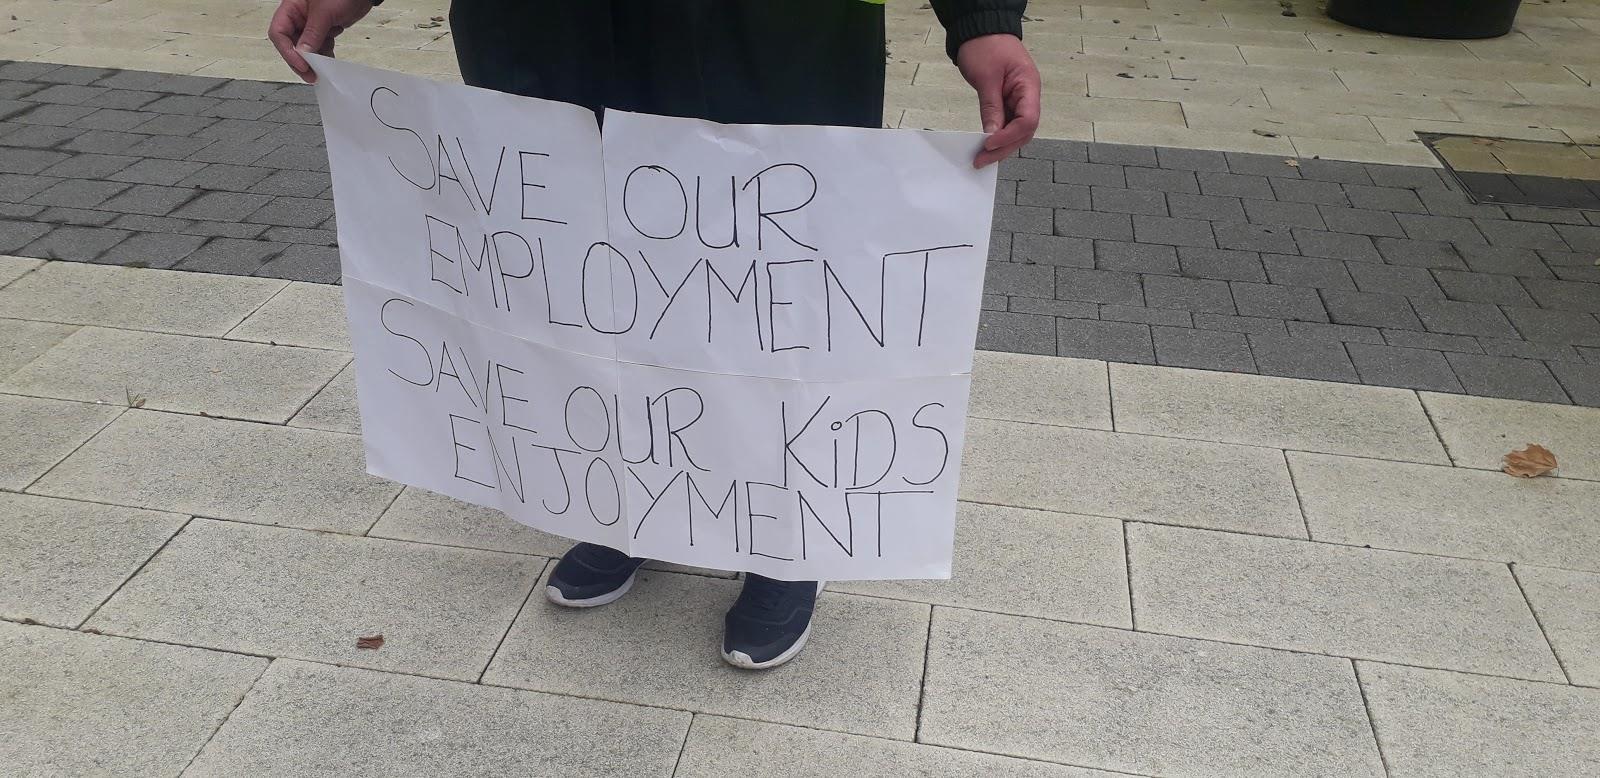 SAVE OUR
EMPLOYMENT
SAVE OUR KiDS
ENJOYMENT